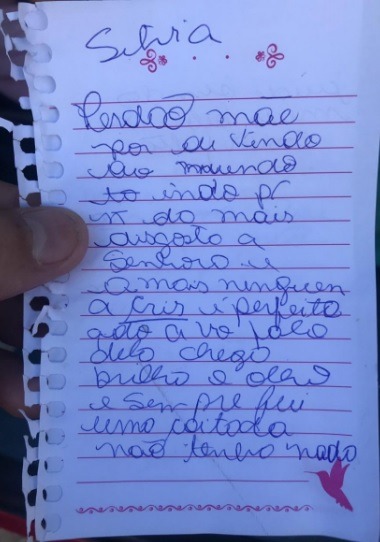 Silvia
Perdão mãe
por de vindo
to indo p/
do mais
disgosto a
Senhora e
a mas ninguen
a Cris é perfeita
ato a vo falo
dela chega
brilha o olho
e sempre fui
uma coitada
não tenho nada